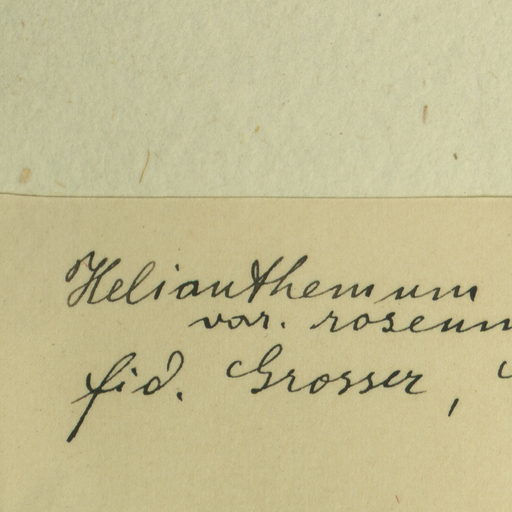 Helianthemum
var. roseum
fid. Grosser,